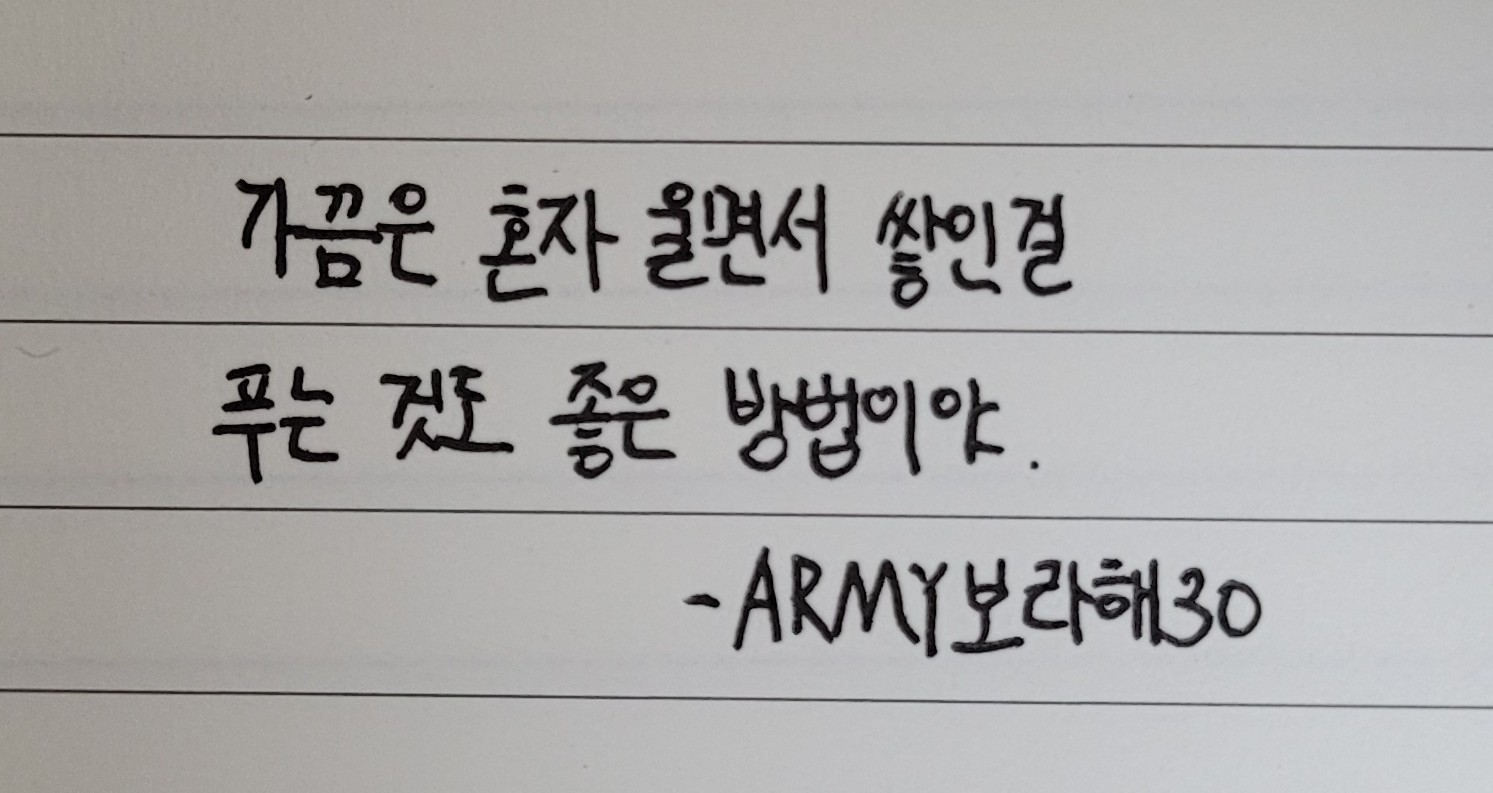 가끔은 혼자 울면서 쌓인걸
푸는 것도 좋은 방법이야.
-ARMY보라해30